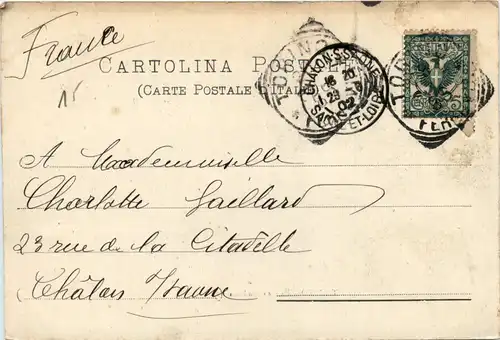 France
CARTOLINA POSTALE
(CARTE POSTALE D'ITALIE)
15
TORINO
CHALON-S-SAONE
16 20
SAONE-ET-LOIRE
TORINO
FERR
A Mademoiselle
Charlotte Gaillard
23 rue de la Citadelle
Châlon s/Saone